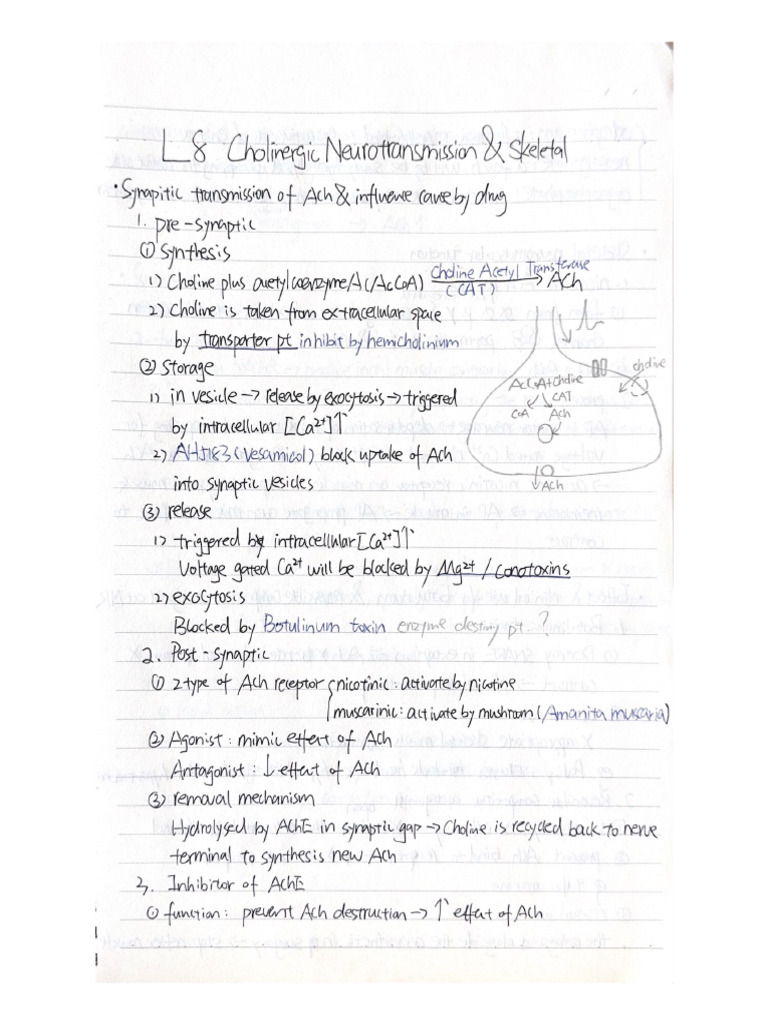 L8 Cholinergic Neurotransmission & Skeletal
• Synapitic transmission of Ach & influence cause by drug
1. pre-synaptic
① Synthesis
1) Choline plus acetyl coenzyme A (AcCoA) Choline Acetyl Transferase (CAT) → ACh
2) Choline is taken from extracellular space
by transporter pt inhibit by hemicholinium
② Storage
1) in vesicle → release by exocytosis → triggered
by intracellular [Ca²⁺]↑
2) AH5183 (Vesamicol) block uptake of Ach
into synaptic vesicles
③ release
1) triggered by intracellular [Ca²⁺]↑
Voltage gated Ca²⁺ will be blocked by Mg²⁺ / conotoxins
2) exocytosis
Blocked by Botulinum toxin enzyme destroy pt ?
choline
AcCoA+Choline
CAT
CoA Ach
Ach
2. Post-synaptic
① 2 type of Ach receptor { nicotinic : activate by nicotine
muscarinic : activate by mushroom (Amanita muscaria)
② Agonist : mimic effect of Ach
Antagonist : ↓ effect of Ach
③ removal mechanism
Hydrolysed by AChE in synaptic gap → Choline is recycled back to nerve
terminal to synthesis new Ach
3. Inhibitor of AchE
① function : prevent Ach destruction → ↑ effect of Ach